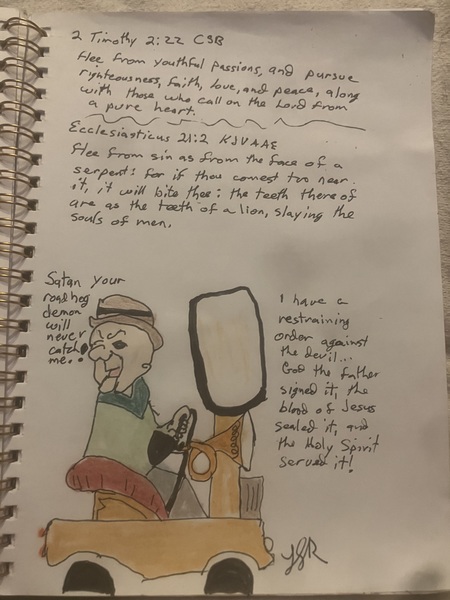 2 Timothy 2:22 CSB
flee from youthful passions, and pursue
righteousness, faith, love, and peace, along
with those who call on the Lord from
a pure heart.
Ecclesiasticus 21:2 KJVAAE
flee from sin as from the face of a
serpent: for if thou comest too near
it, it will bite thee: the teeth there of
are as the teeth of a lion, slaying the
souls of men.
Satan your
road hog
demon
will
never
catch
me!
I have a
restraining
order against
the devil...
God the father
signed it, the
blood of Jesus
sealed it, and
the Holy Spirit
served it!